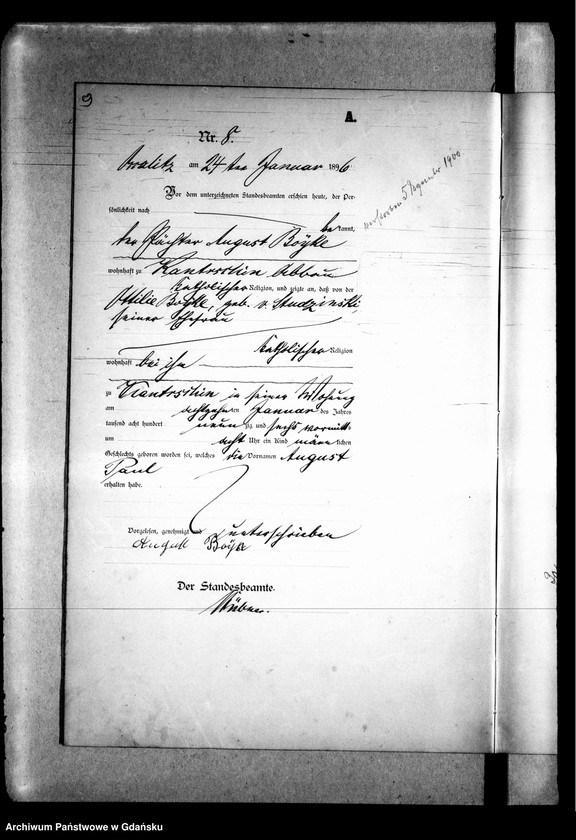 9
A.
Nr. 8.
am 24 ten Januar 1896.
Vor dem unterzeichneten Standesbeamten erschien heute, der Per-
sönlichkeit nach
be kannt,
der Pächter August Böyke
wohnhaft zu Kantrschin Abbau
katholischer Religion, und zeigte an, daß von der
Ottilie Boyke, geb. v. Studzinski,
seiner Ehefrau
katholischer Religion
wohnhaft bei ihm
zu Kantrschin in seiner Wohnung
am achtzehnten Januar des Jahres
tausend acht hundert neun zig und sechs vormitt.
um acht Uhr ein Kind männ lichen
Geschlechts geboren worden sei, welches die Vornamen August
Paul
erhalten habe.
Vorgelesen, genehmigt und unterschrieben
August Böyke
Der Standesbeamte.
verstorben 5 Dezember 1900
Archiwum Państwowe w Gdańsku